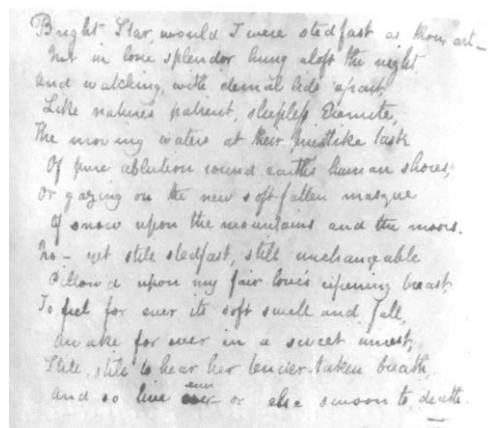 Bright Star, would I were stedfast as thou art—
Not in lone splendor hung aloft the night
And watching, with eternal lids apart,
Like natures patient, sleepless Eremite,
The moving waters at their priestlike task
Of pure ablution round earths human shores,
Or gazing on the new soft-fallen masque
Of snow upon the mountains and the moors.
No— yet still stedfast, still unchangeable
Pillow'd upon my fair love's ripening breast,
To feel for ever its soft swell and fall,
Awake for ever in a sweet unrest,
Still, still to hear her tender-taken breath,
ever
And so live ever or else swoon to death.